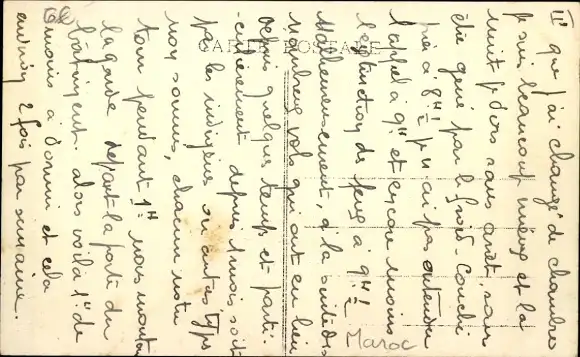 CARTE POSTALE
II° que j'ai changé de chambres
je suis beaucoup mieux et la
nuit je dors sans arrêt, sans
être gêné par le froid. Couché
à 8H 1/2 je n'ai pas entendu
l'appel à 9H et encore moins
l'extinction de feux à 9H 1/2
Malheureusement, à la suite des
nombreux vols qui ont eu lieu
depuis quelques temps et parti-
culièrement depuis 1 mois soit
par les indigènes ou autres types
nous sommes, chacun notre
tour pendant 1H nous montons
la garde devant la porte du
bâtiment. Alors voilà 1H de
moins à dormir et cela
environ 2 fois par semaine.
Maroc